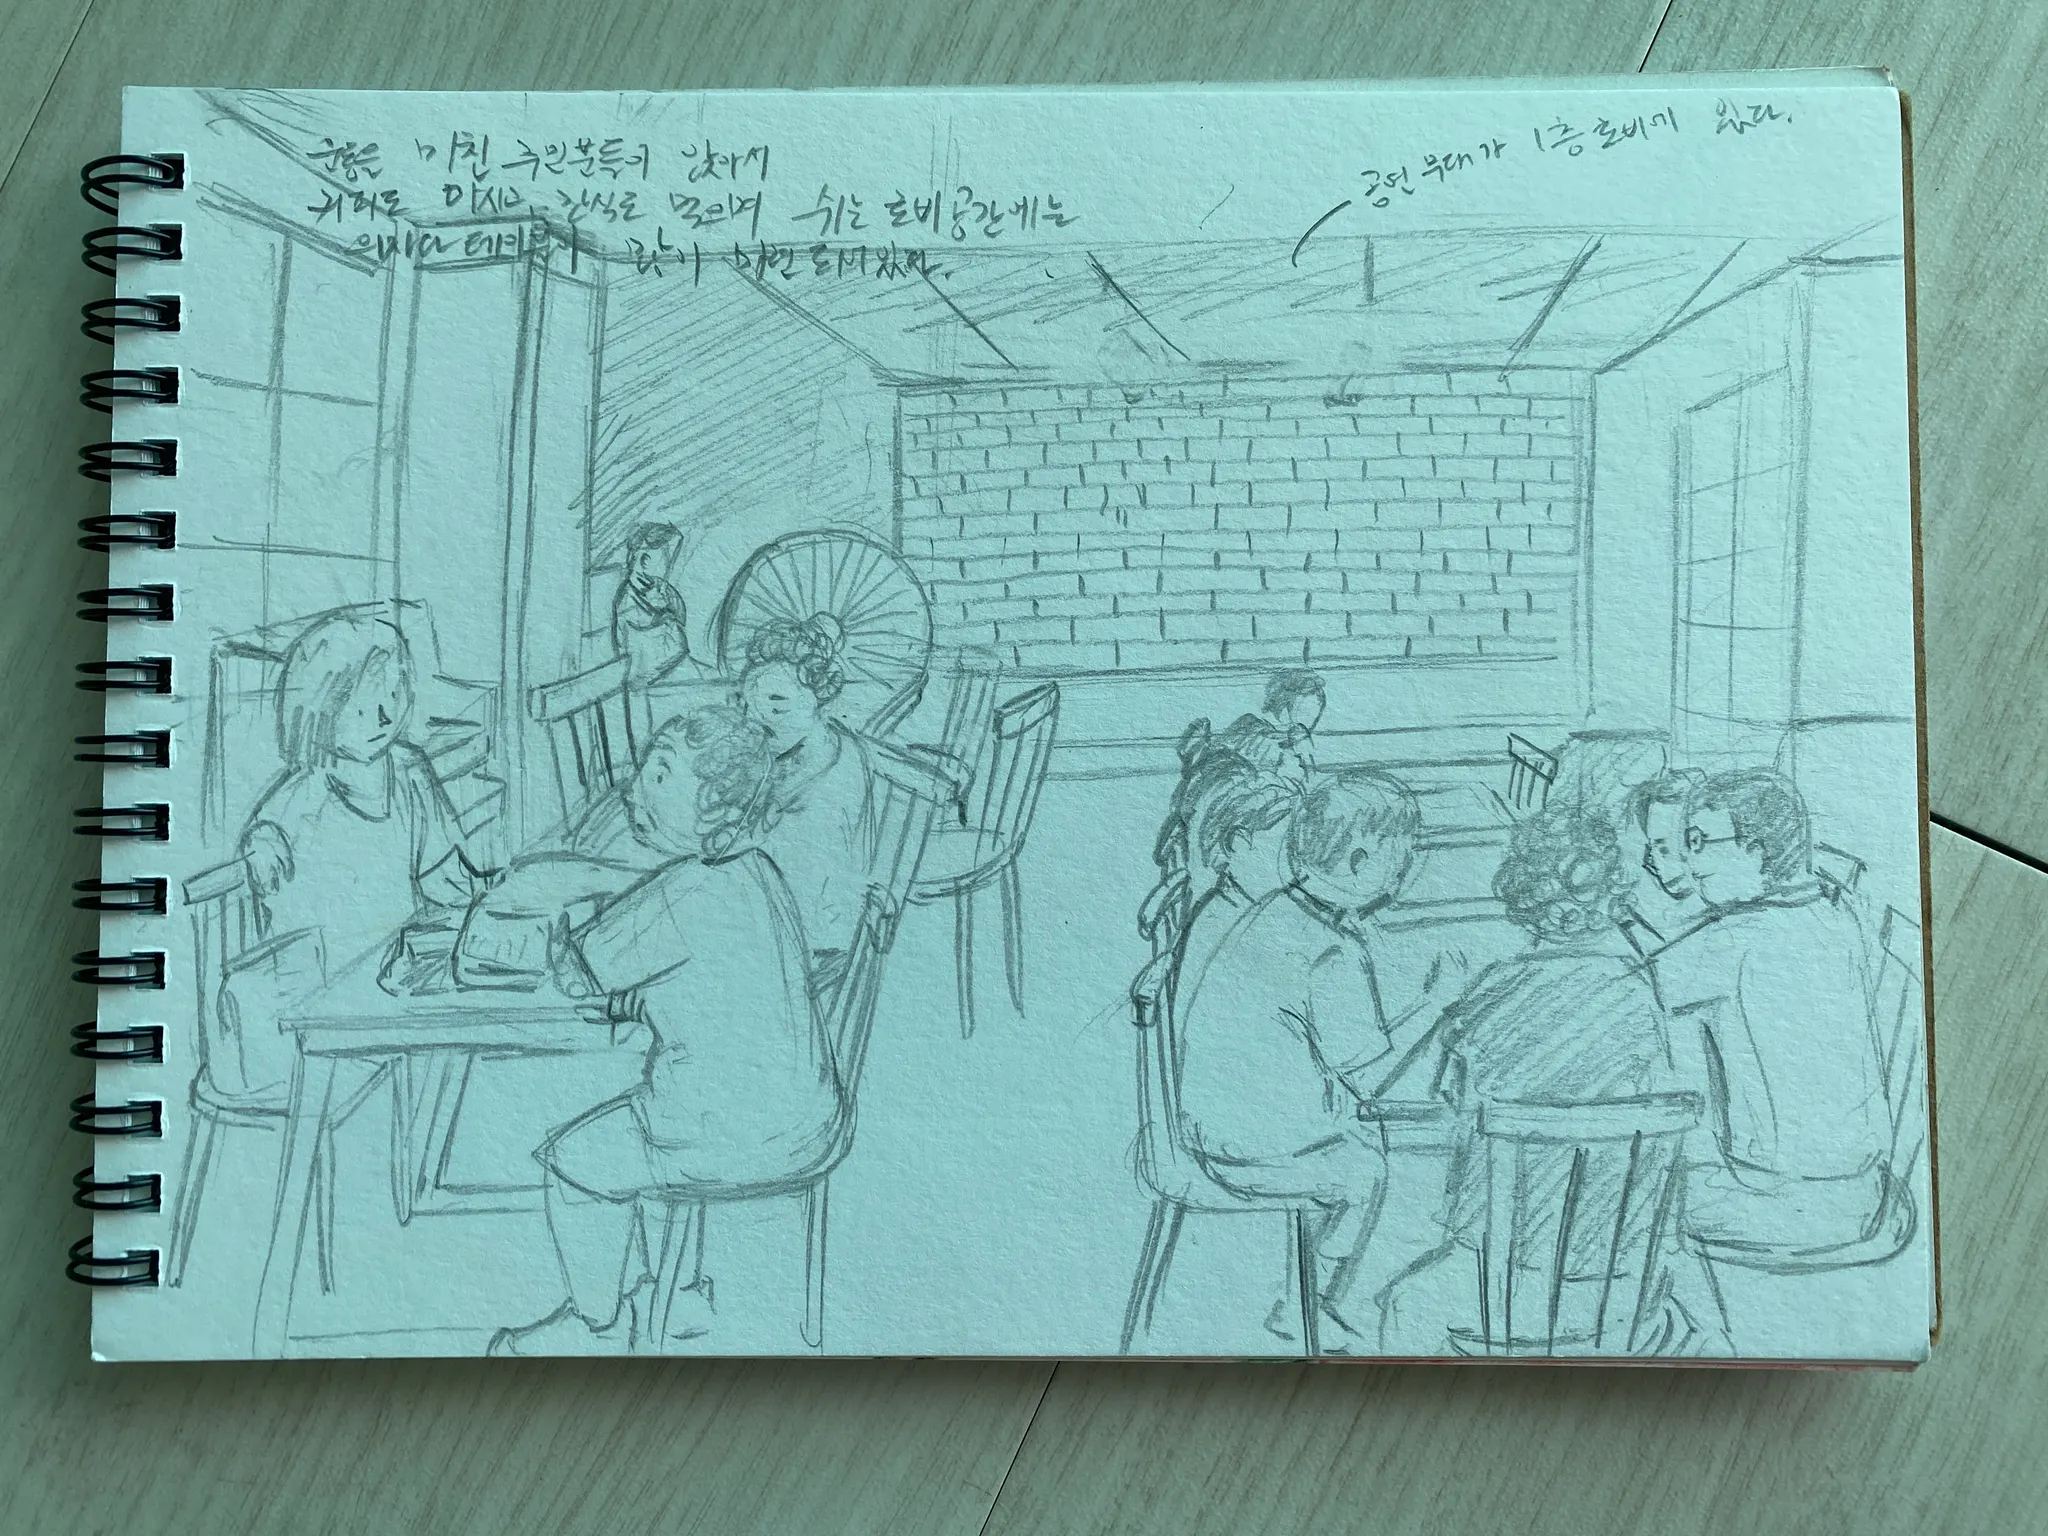 운동을 마친 주민분들이 앉아서
커피도 마시고, 간식도 먹으며 쉬는 로비공간에는
의자다 테이블가 많이 마련 되어있다.
공연 무대가 1층 로비에 있다.